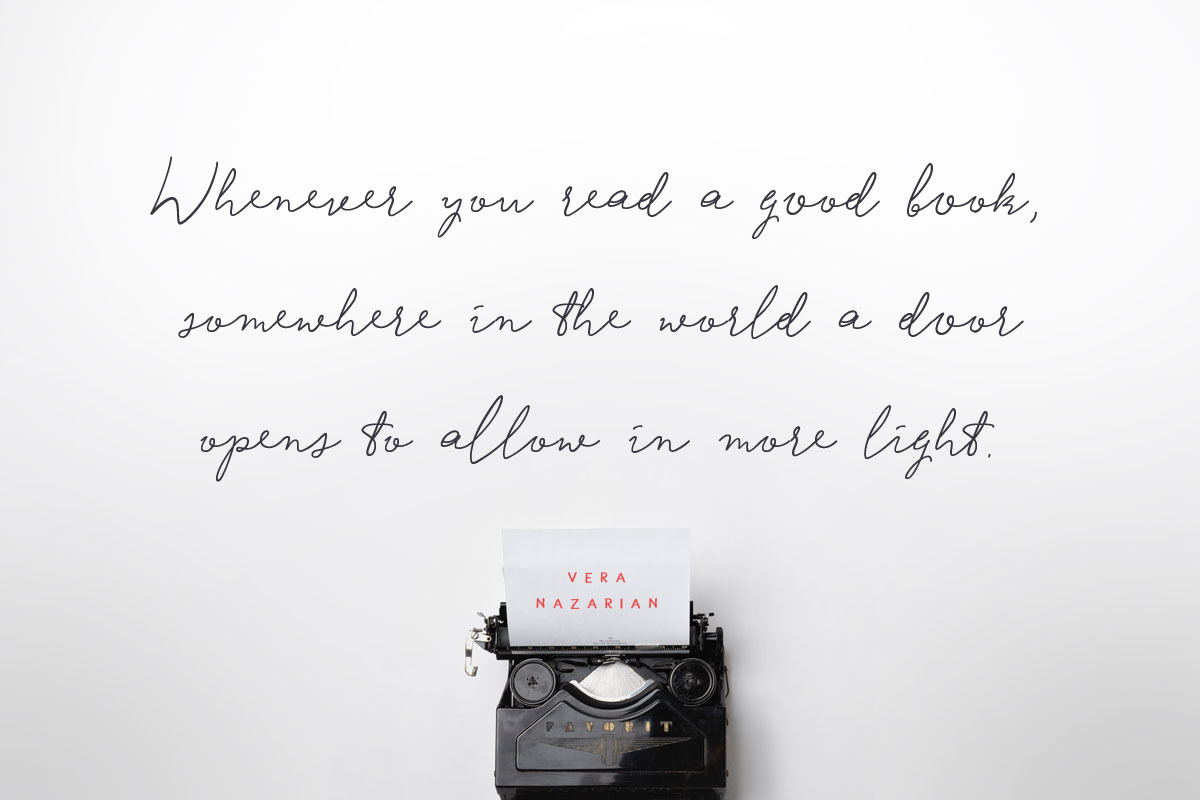 Whenever you read a good book,
somewhere in the world a door
opens to allow in more light.
VERA
NAZARIAN
FAVORIT